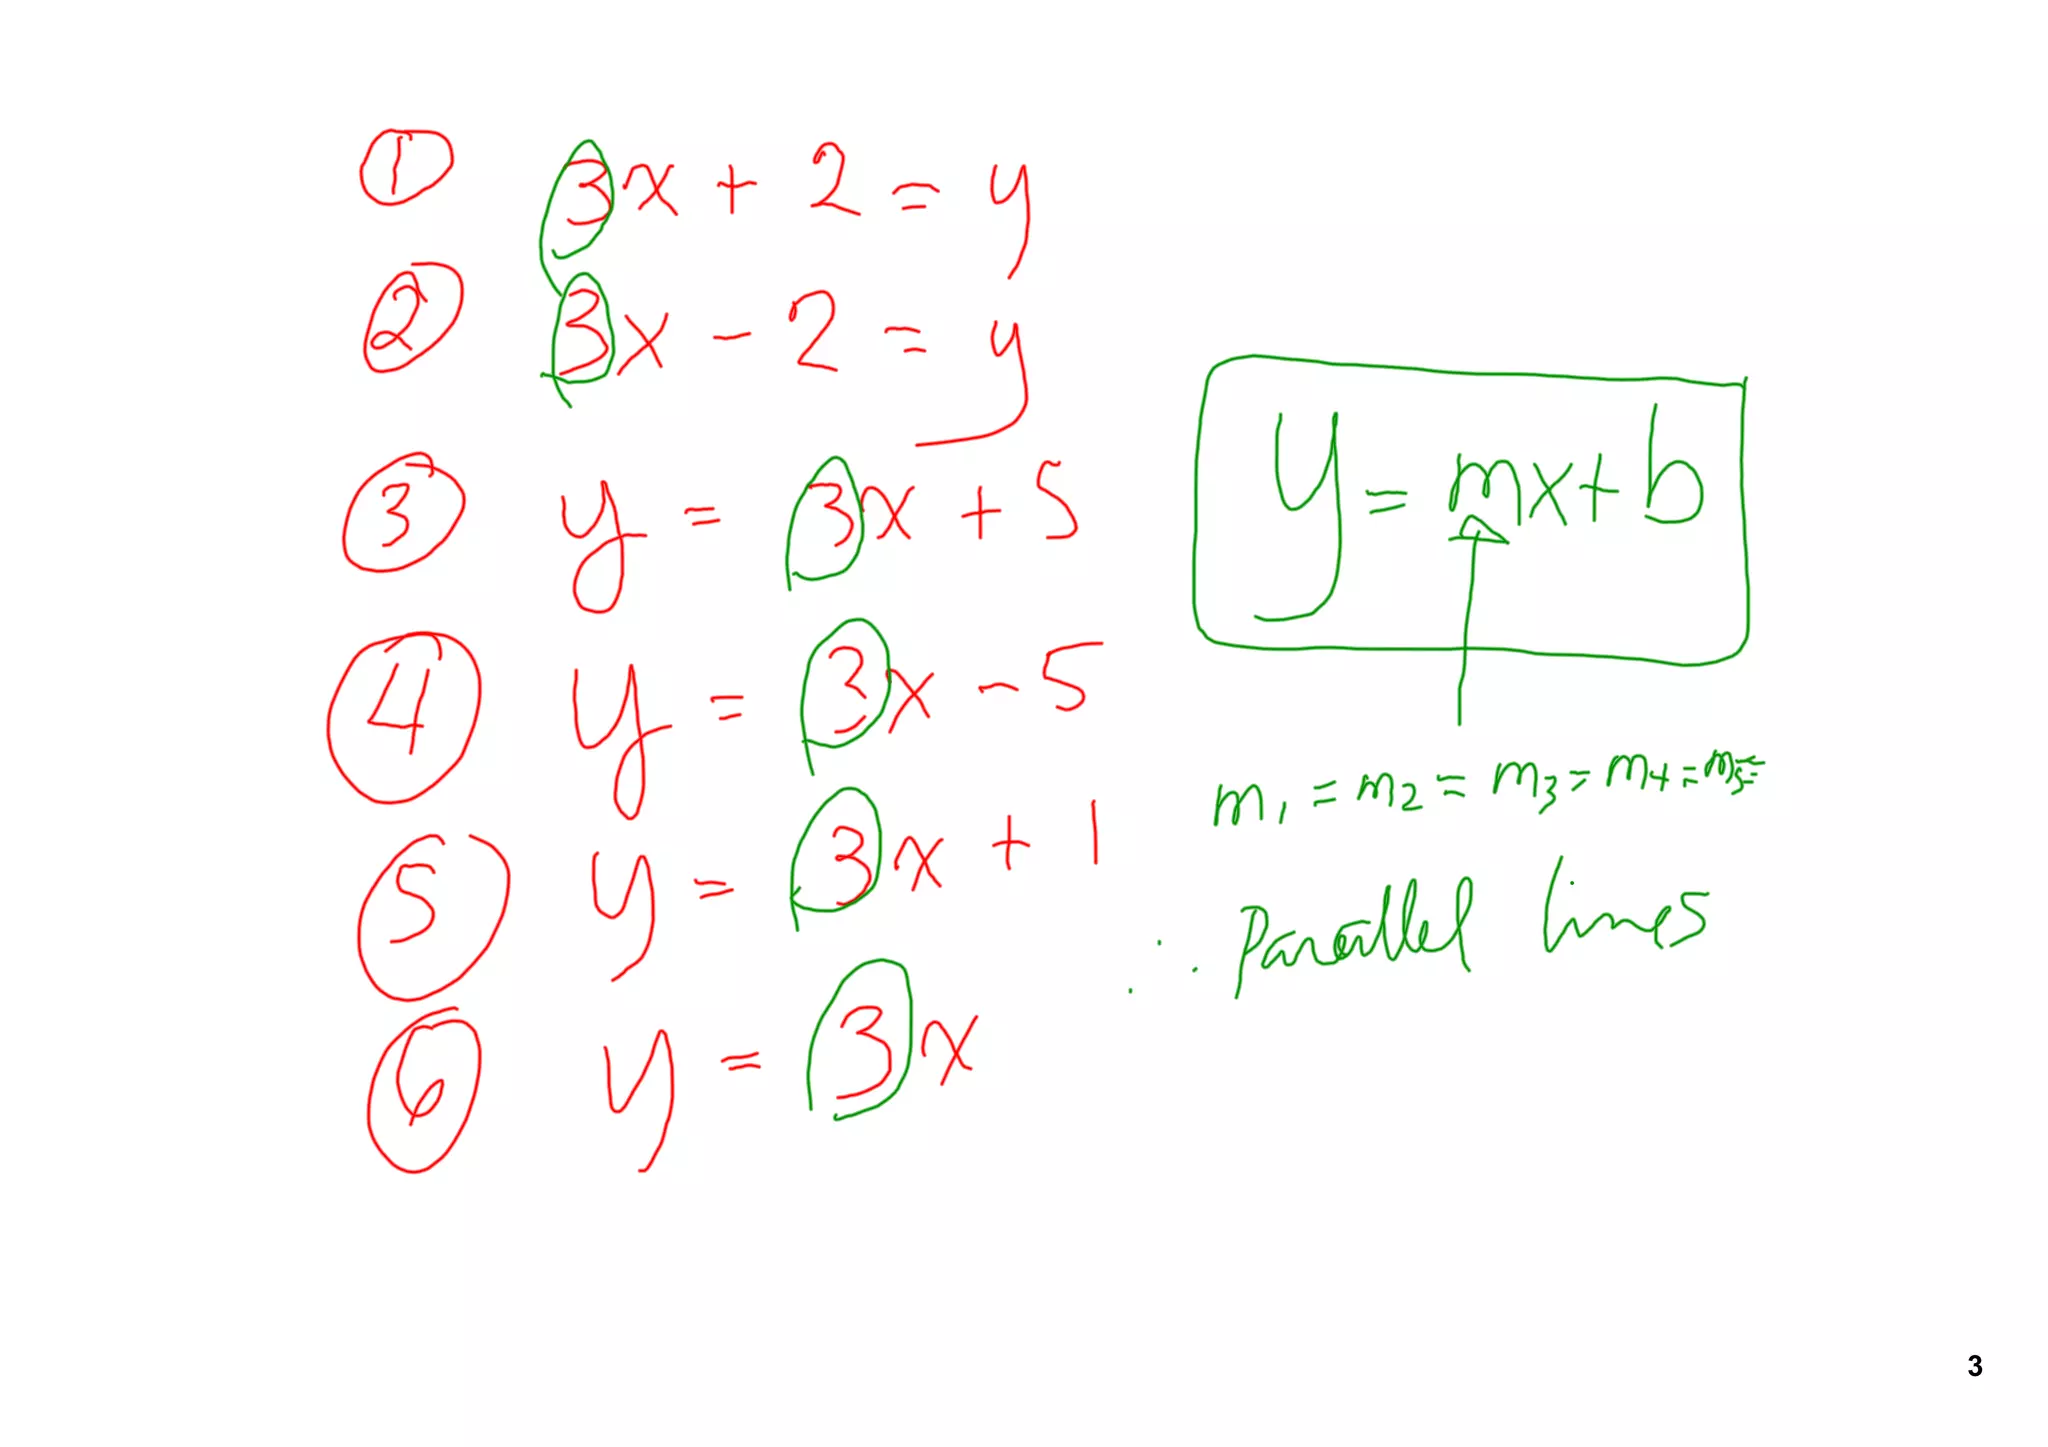 ① 3x + 2 = y
② 3x - 2 = y
③ y = 3x + 5
④ y = 3x - 5
⑤ y = 3x + 1
⑥ y = 3x
y = mx + b
m₁ = m₂ = m₃ = m₄ = m₅ =
∴ Parallel lines
3